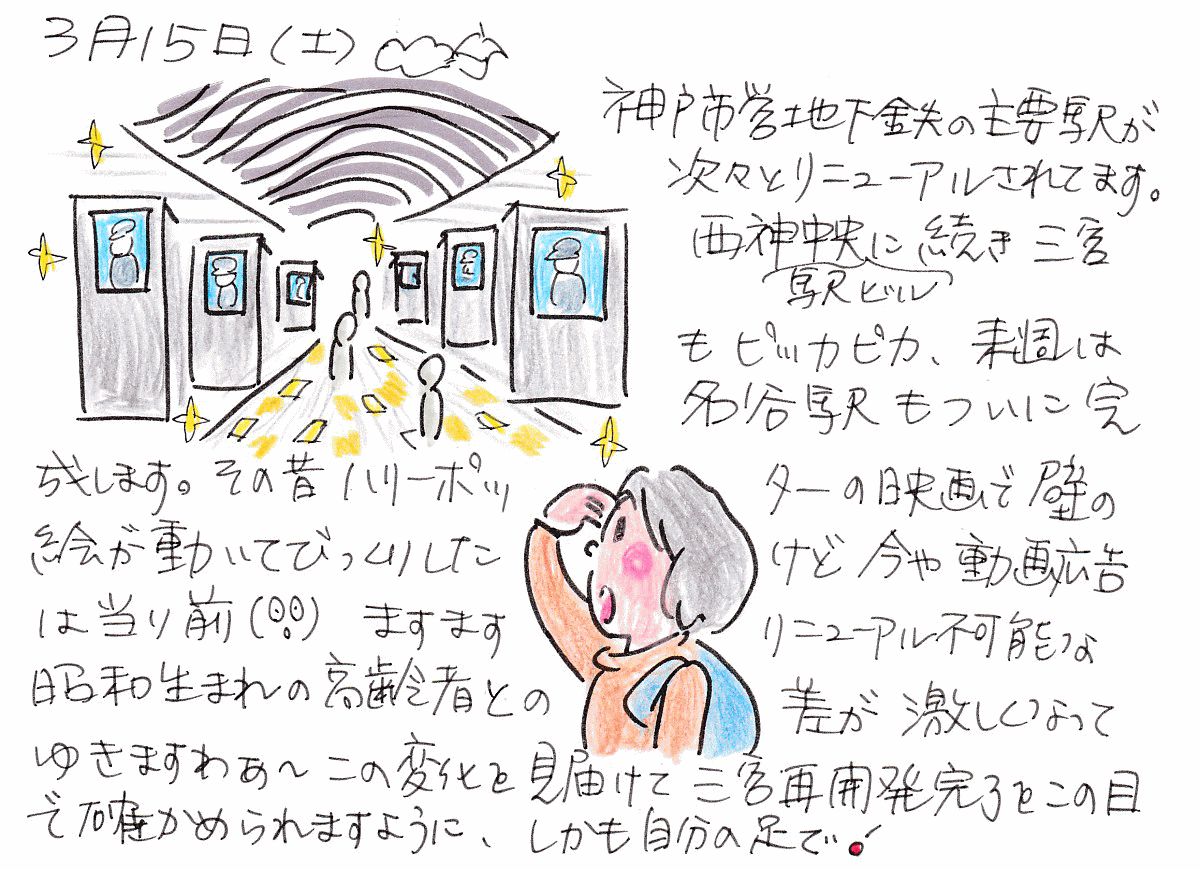 3月15日(土)
神戸市営地下鉄の主要駅が
次々とリニューアルされてます。
西神中央に続き三宮
駅ビル
もピッカピカ、来週は
名谷駅もついに完
成します。その昔ハリーポッターの映画で壁の
絵が動いてびっくりしたけど今や動画広告
は当り前(!!)ますますリニューアル不可能な
昭和生まれの高齢者との差が激しくなって
ゆきますわぁ〜この変化を見届けて三宮再開発完了をこの目
で確かめられますように、しかも自分の足で!